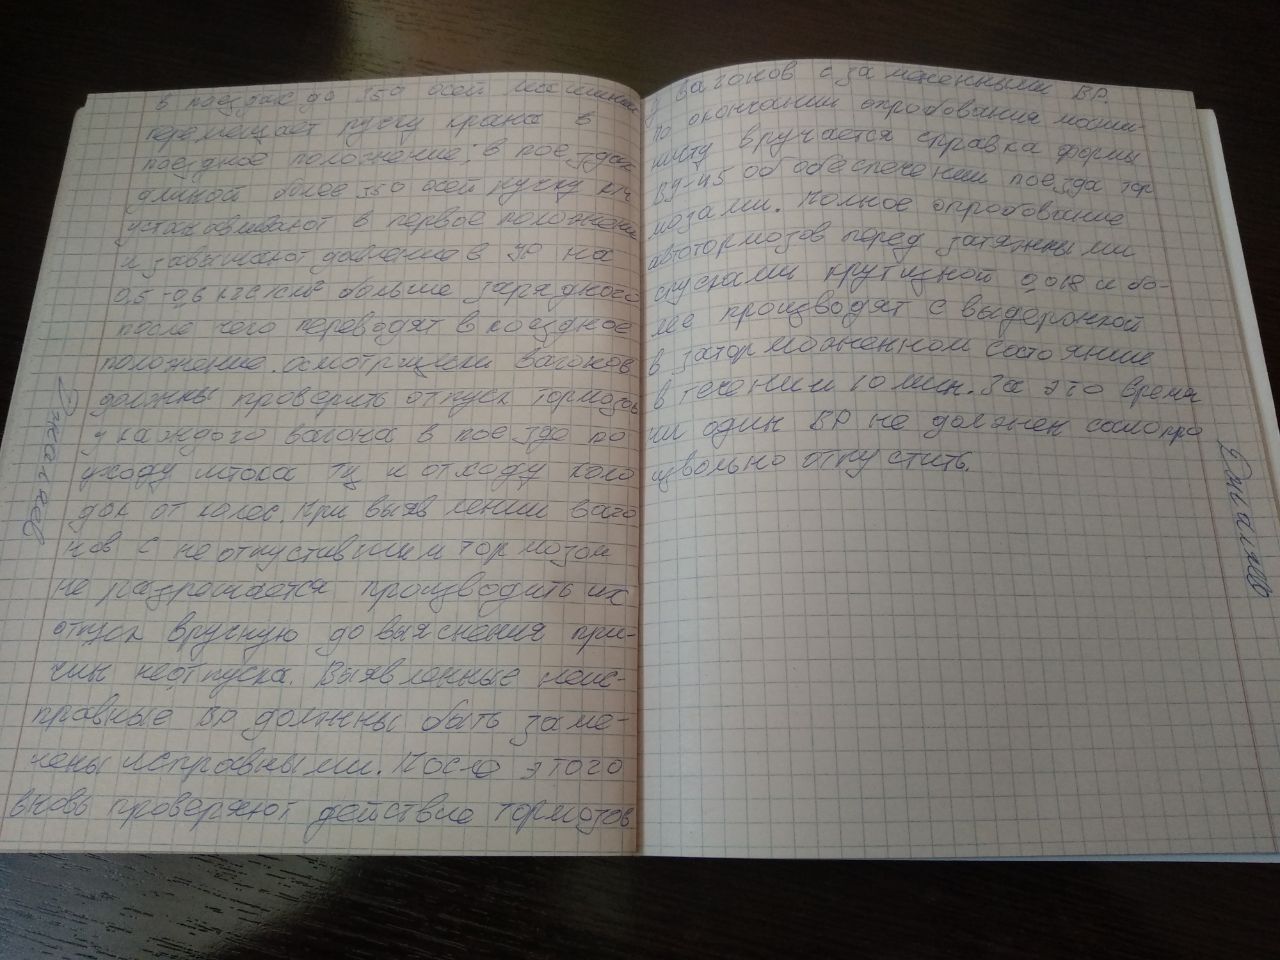 в поездах до 350 осей машинист
перемещает ручку крана в
поездное положение; в поездах
длиной более 350 осей ручку КМ
устанавливают в первое положение
и завышают давление в УР на
0,5-0,6 кгс/см² больше зарядного
после чего переводят в поездное
положение. осмотрщики вагонов
должны проверить отпуск тормозов
у каждого вагона в поезде по
уходу штока ТЦ и отходу коло
док от колес. При выявлении ваго
нов с не отпустившим тормозом
не разрешается производить их
отпуск вручную до выяснения при-
чин неотпуска. Выявленные неис-
правные ВР должны быть заме-
нены исправными. После этого
вновь проверяют действие тормозов
у вагонов с замененными ВР.
По окончании опробования маши-
нисту вручается справка формы
ВУ-45 об обеспечении поезда тор
мозами. Полное опробование
автотормозов перед затяжными
спусками крутизной 0,018 и бо-
лее производят с выдержкой
в заторможенном состоянии
в течении 10 мин. За это время
ни один ВР не должен самопро
извольно отпустить.